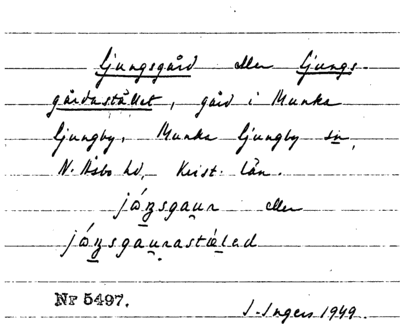 Ljungsgård eller Ljungs-
gårdastället, gård i Munka
Ljungby, Munka Ljungby sn,
N. Åsbo hd, Krist. län.
jóŋsgaur eller
jóŋsgaurastæled
Nr 5497.
I. Ingers 1949.